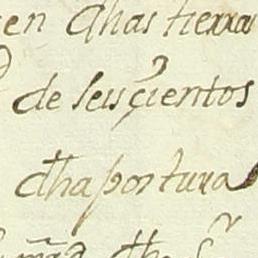 en dhas tierra
de seis çientos
dha postura